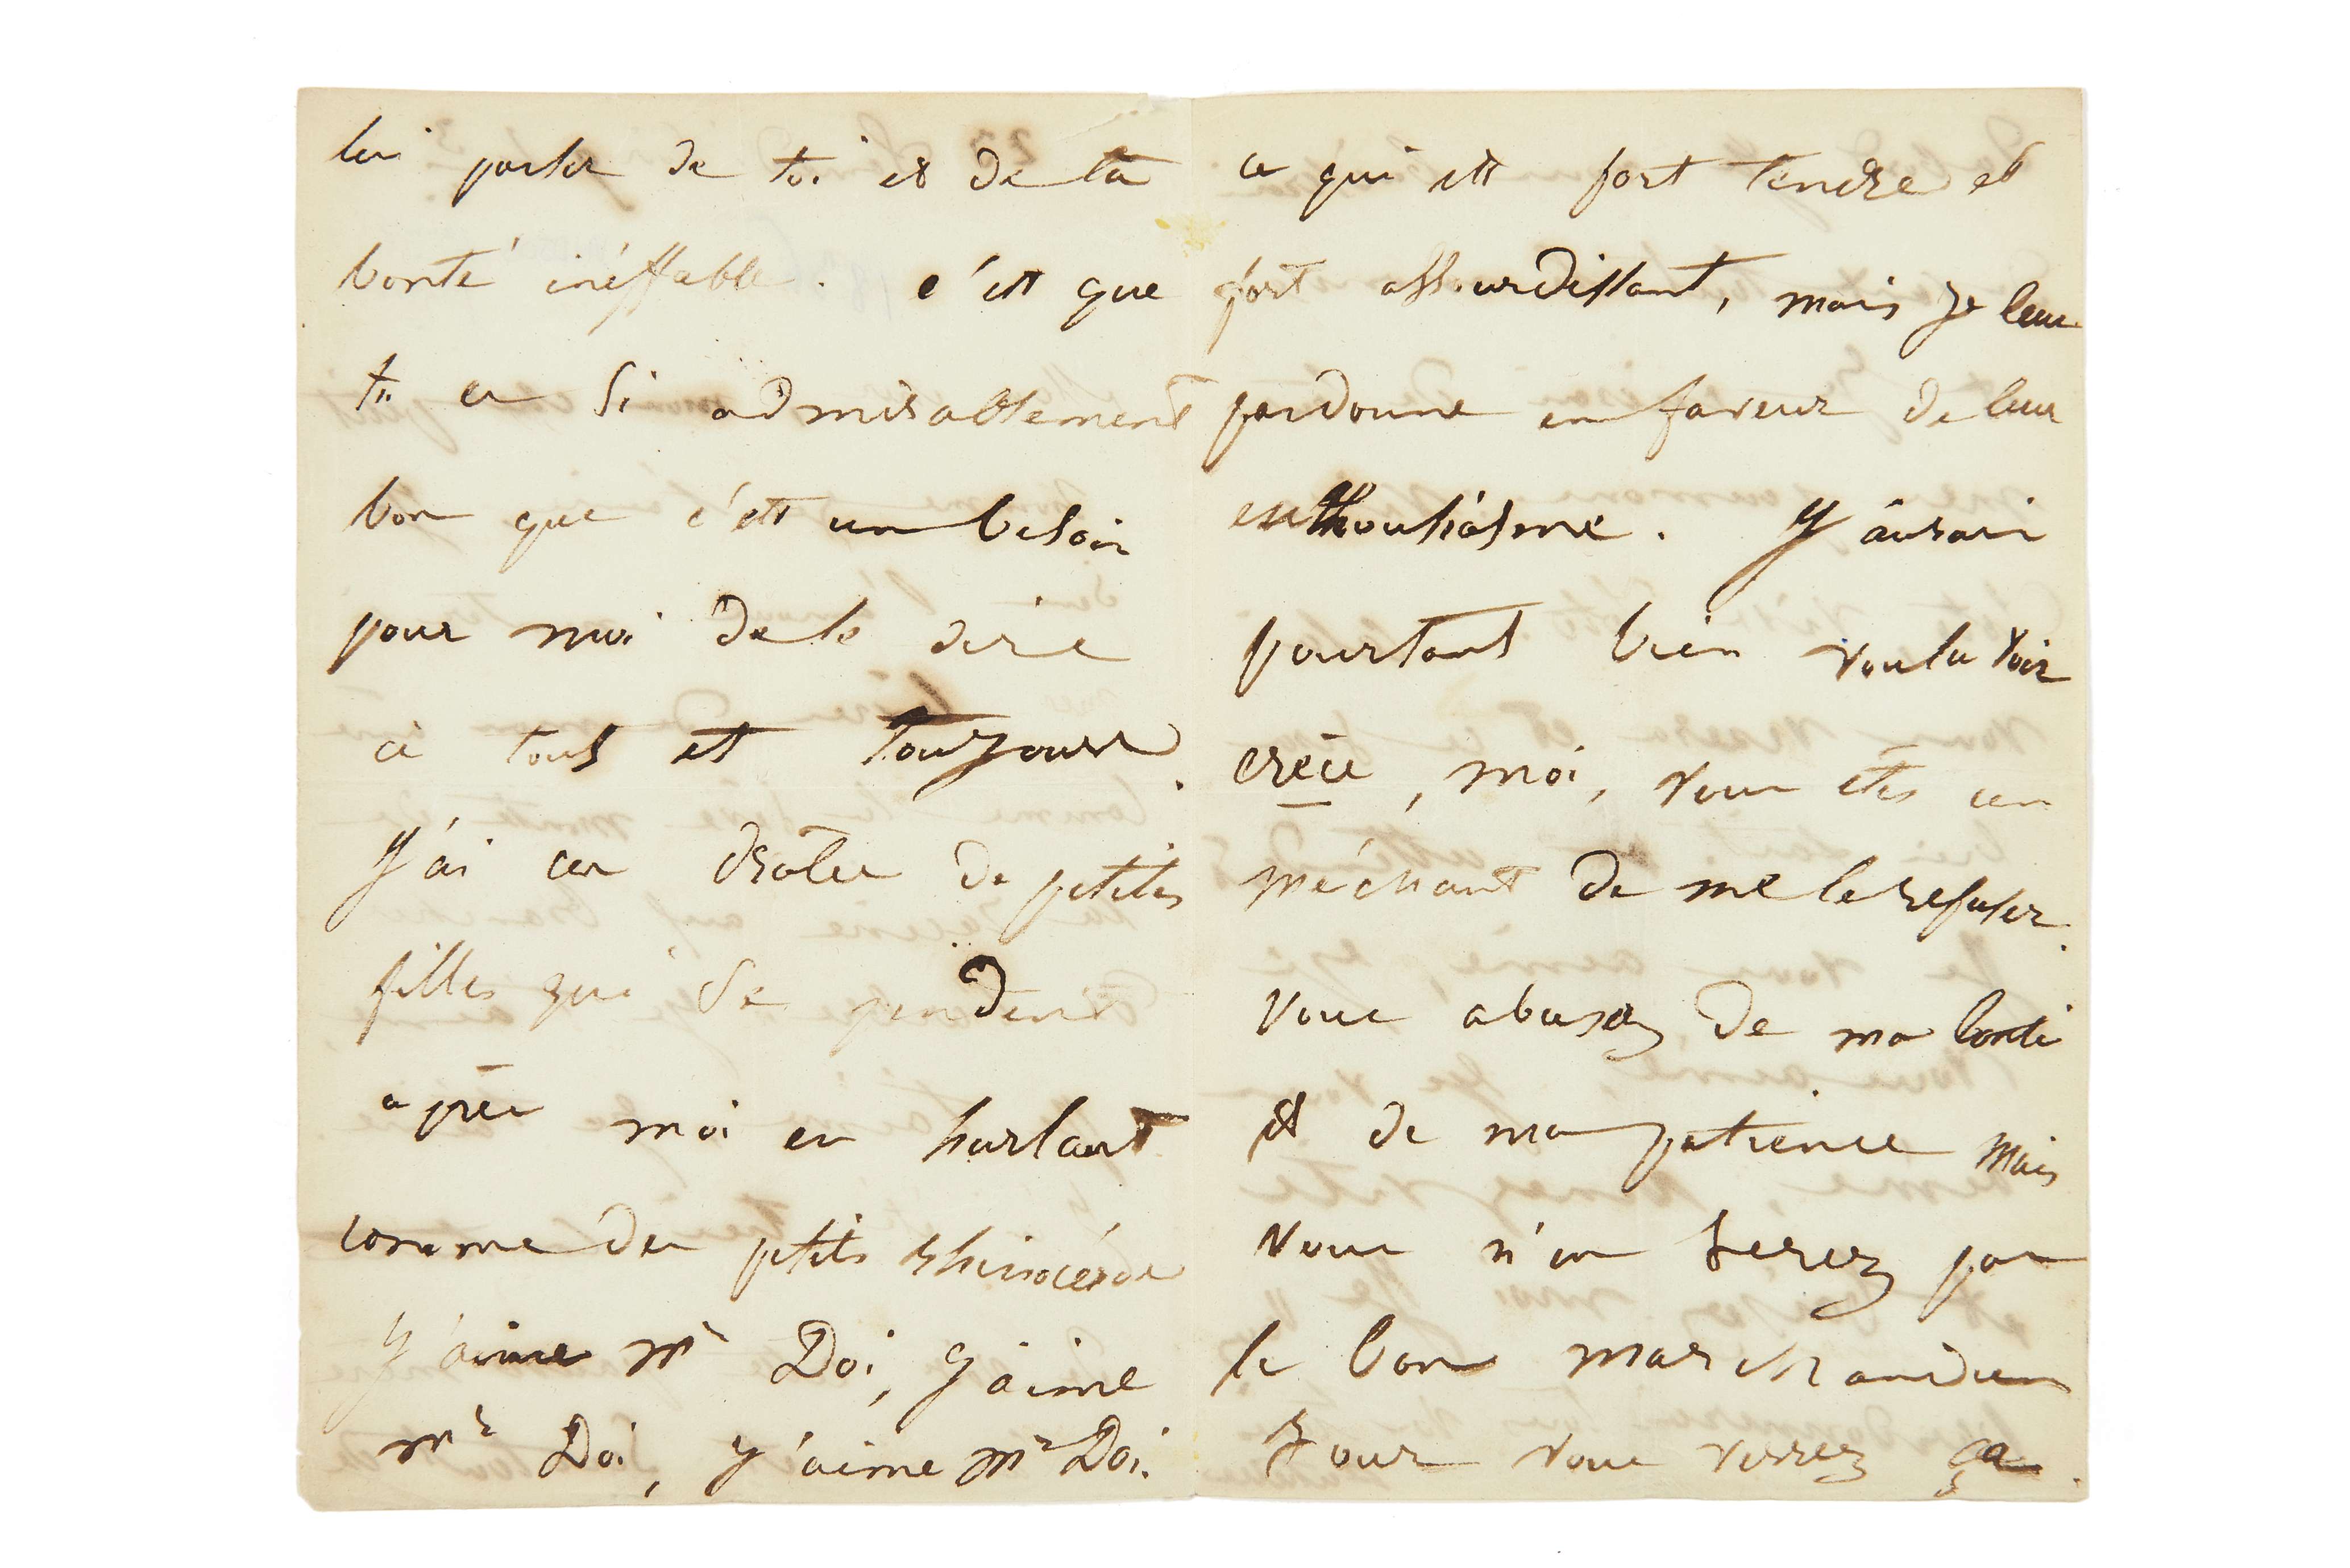 lui parler de toi et de ta
bonté inéffable. c'est que
tu es si admirablement
bon que c'est un besoin
pour moi de le dire
à tous et toujours.
J'ai ces drôles de petites
filles qui se pendent
après moi en hurlant
comme des petits rhinocéros
J'aime Mr Doi, J'aime
Mr Doi, J'aime Mr Doi.
ce qui est fort tendre et
fort assourdissant, mais je leur
pardonne en faveur de leur
enthousiasme. J'aurais
pourtant bien voulu voir
crécé, moi, vous êtes un
méchant de me le refuser.
Vous abusez de ma bonté
et de ma patience mais
vous n'en serez pas
le bon marchand un
jour vous verrez ça.